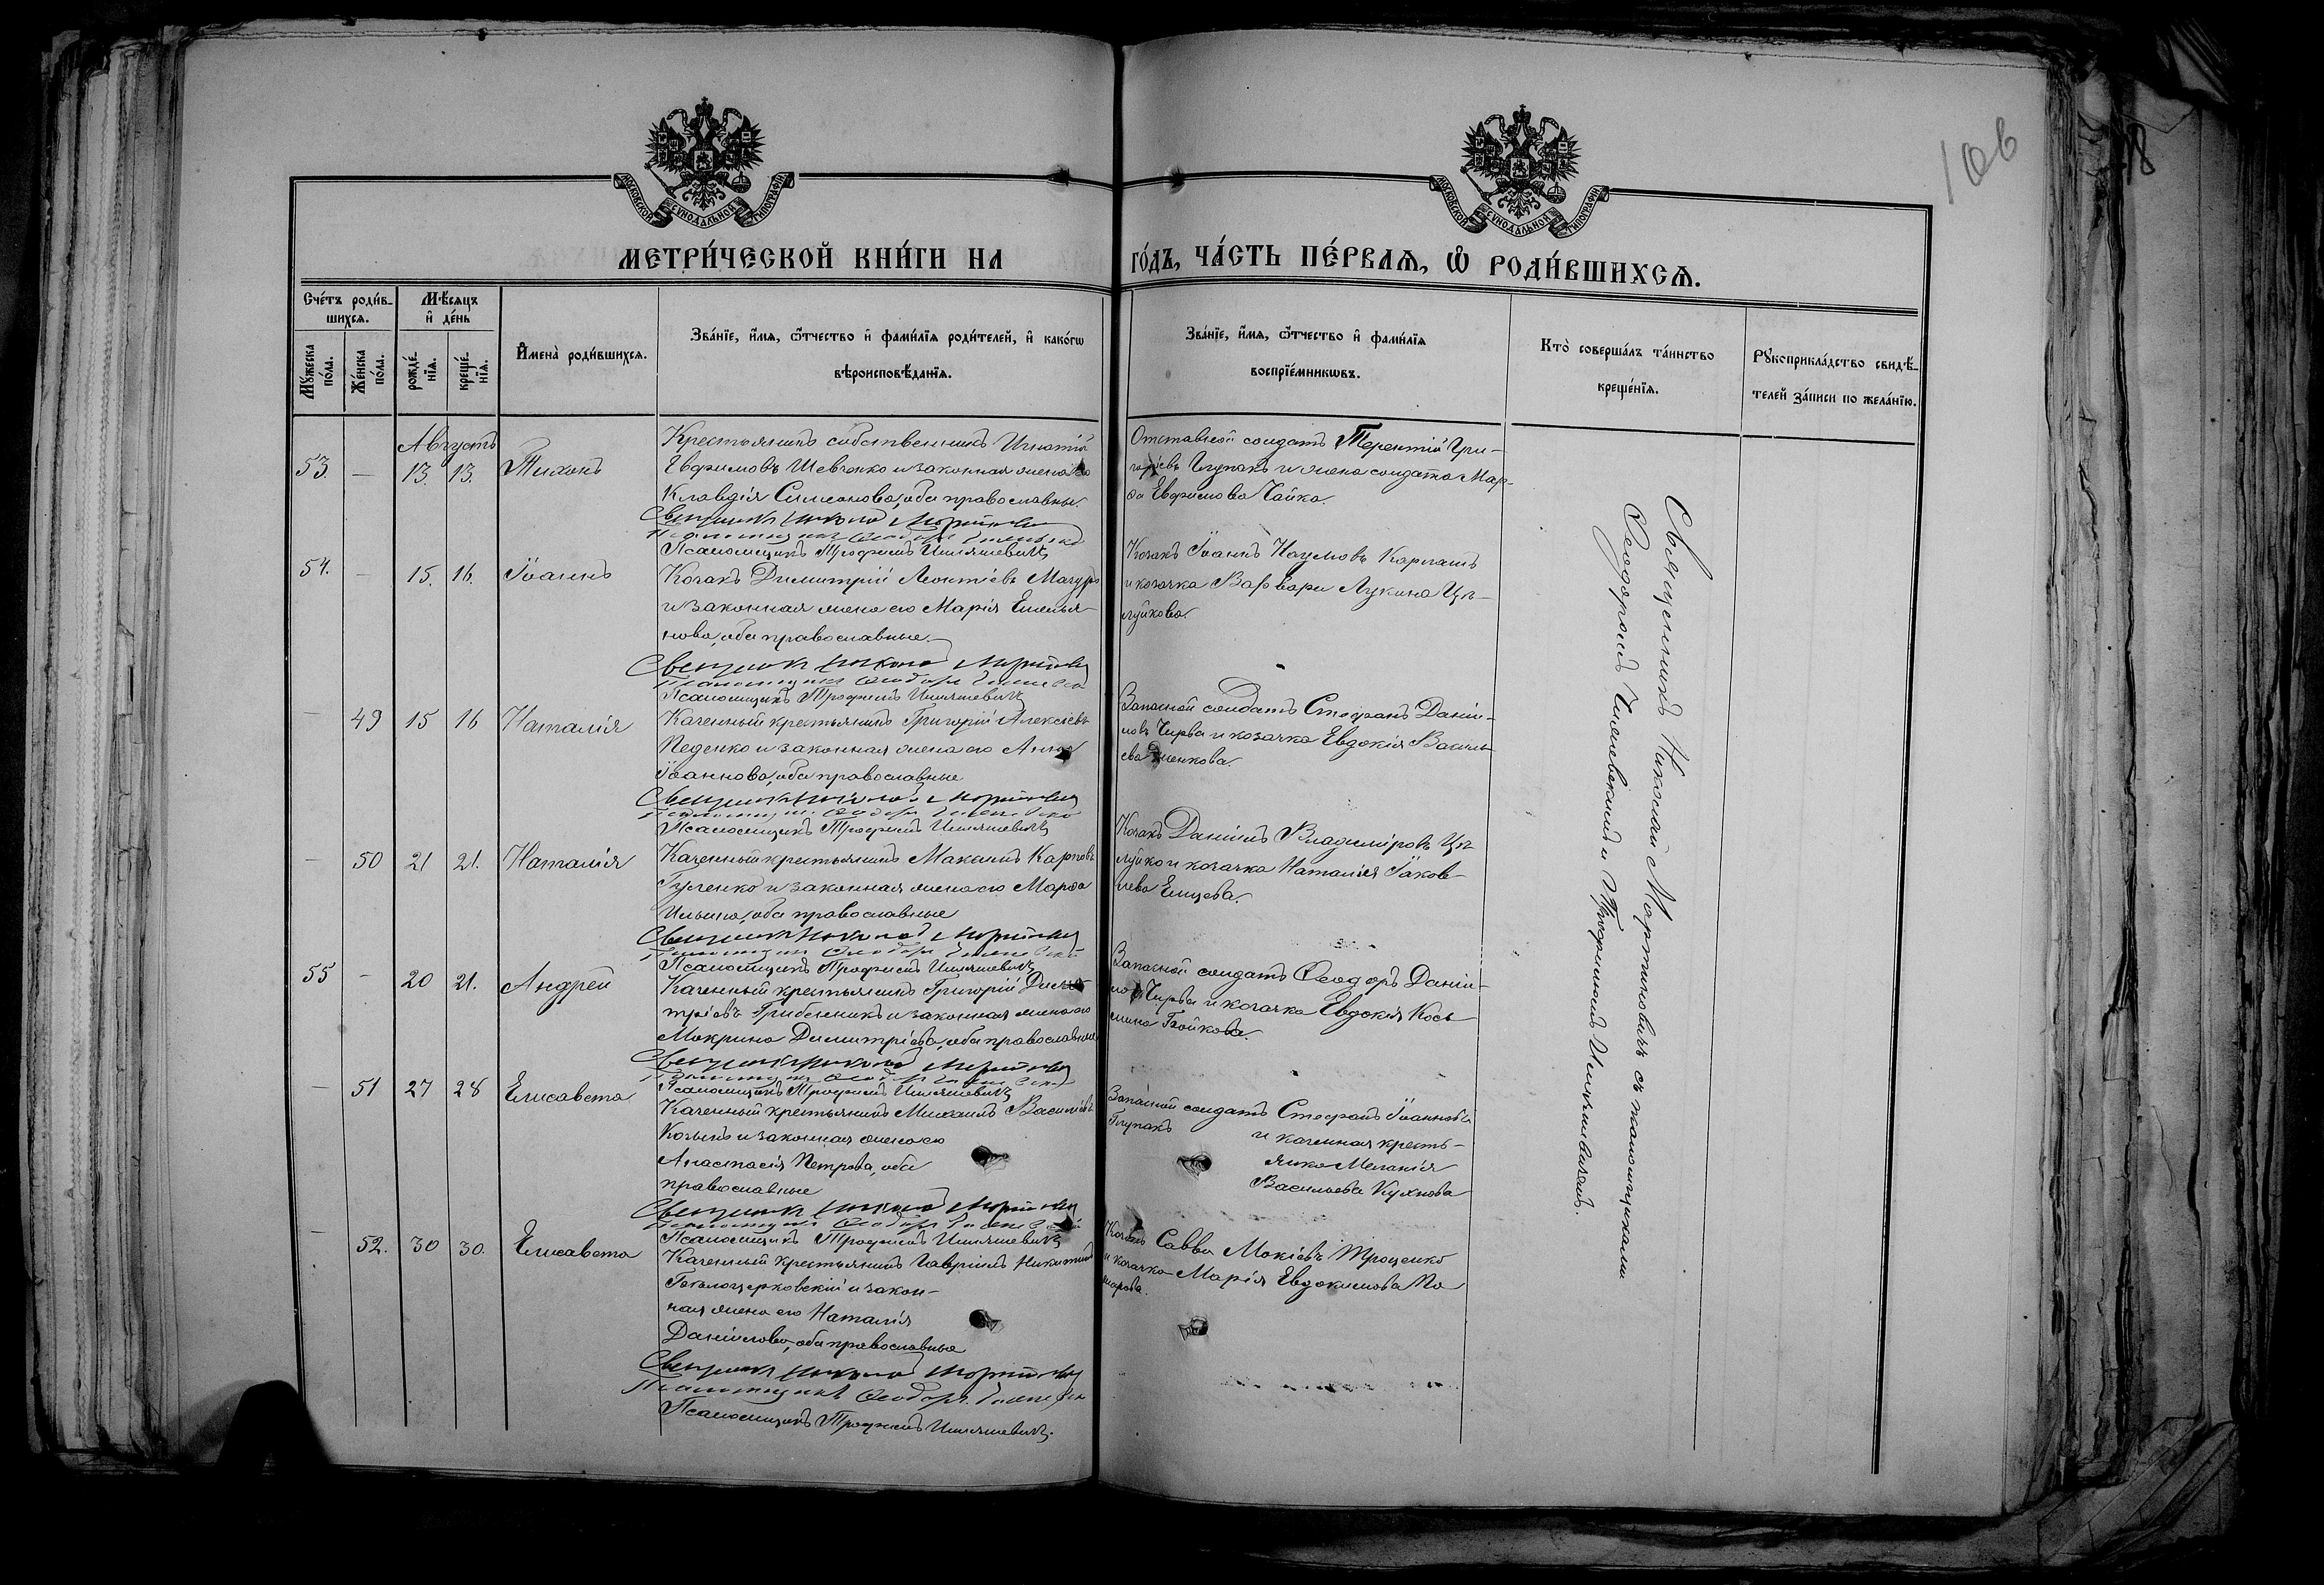 106
МОСКОВСКОЙ СУНОДАЛЬНОЙ ТИПОГРАФІИ
МОСКОВСКОЙ СУНОДАЛЬНОЙ ТИПОГРАФІИ
МЕТРИ́ЧЕСКОЙ КНИ́ГИ НА
ГО́ДЪ, ЧА́СТЬ ПЕ́РВАѦ, Ѡ҆ РОДИ́ВШИХСѦ.
Сче́тъ роди́в-
шихсѧ.
Мꙋжеска по́ла.
Же́нска по́ла.
Мѣ́сѧцъ
и҆ де́нь
рожде́нїѧ.
креще́нїѧ.
И҆мена̀ роди́вшихсѧ.
Зва́нїе, и҆́мѧ, ѻ҆́тчество и҆ фами́лїѧ роди́телей, и҆ како́гѡ
вѣроисповѣ́данїѧ.
Зва́нїе, и҆́мѧ, ѻ҆́тчество и҆ фами́лїѧ
воспрїе́мникѡвъ.
Кто̀ соверша́лъ та́инство
креще́нїѧ.
Рꙋкоприкла́дство свидѣ́-
телей за́писи по жела́нїю.
Августъ
53. — 13. 13. Тихонъ
Крестьянинъ собственникъ Игнатій
Евфимовъ Шевченко и законная жена его
Клавдія Симеонова, оба православные.
Священникъ Николай Мартиновичъ
Псаломщикъ Ѳеодоръ
Псаломщикъ Трофимъ
Отставной солдатъ Терентій Гри-
горіевъ Глупакъ и жена солдата Мар-
ѳа Евфимова Чайка.
54. — 15. 16. Іоаннъ
Козакъ Димитрій Леонтіевъ Мачуръ
и законная жена его Марія Емелья-
нова, оба православные.
Священникъ Николай Мартиновичъ
Псаломщикъ Ѳеодоръ
Псаломщикъ Трофимъ
Козакъ Іоаннъ Наумовъ Карпашъ
и козачка Варвара Лукина Цы-
луйкова.
— 49 15 16 Наталія
Казенный крестьянинъ Григорій Алексіевъ
Педенко и законная жена его Анна
Іоаннова, оба православные
Священникъ Николай Мартиновичъ
Псаломщикъ Ѳеодоръ
Псаломщикъ Трофимъ
Запасной солдатъ Стефанъ Даніи-
ловъ Чирва и козачка Евдокія Василь-
ева
— 50 21 21. Наталія
Казенный крестьянинъ Максимъ Карповъ
Гученко и законная жена его Марѳа
Ильина, оба православные
Священникъ Николай Мартиновичъ
Псаломщикъ Ѳеодоръ
Псаломщикъ Трофимъ
Козакъ Даніилъ Владиміровъ Цы-
луйко и козачка Наталія Іаков-
лева Емцева.
55 — 20 21. Андрей
Казенный крестьянинъ Григорій Дими-
тріевъ Гребенникъ и законная жена его
Мокрина Димитріева, оба православные
Священникъ Николай Мартиновичъ
Псаломщикъ Ѳеодоръ
Псаломщикъ Трофимъ
Запасной солдатъ Ѳеодоръ Даніи-
ловъ Чирва и козачка Евдокія Кось-
мина Бойкова.
— 51 27 28 Елисавета
Казенный крестьянинъ Михаилъ Василіевъ
и законная жена его
Анастасія Петрова, оба
православные
Священникъ Николай Мартиновичъ
Псаломщикъ Ѳеодоръ
Псаломщикъ Трофимъ
Запасной солдатъ Стефанъ Іоанновъ
Глупакъ и казенная кресть-
янка Меланія
Васильева Кухнова
— 52. 30 30. Елисавета
Казенный крестьянинъ Гавріилъ Никитинъ
Бѣлоцерковскій и закон-
ная жена его Наталія
Даніилова, оба православные
Священникъ Николай Мартиновичъ
Псаломщикъ Ѳеодоръ
Псаломщикъ Трофимъ
Козакъ Савва Мокіевъ Троценко
и козачка Марія Евдокимова По-
марова.
Священникъ Николай Мартиновичъ съ псаломщиками
Ѳеодоромъ и Трофимомъ